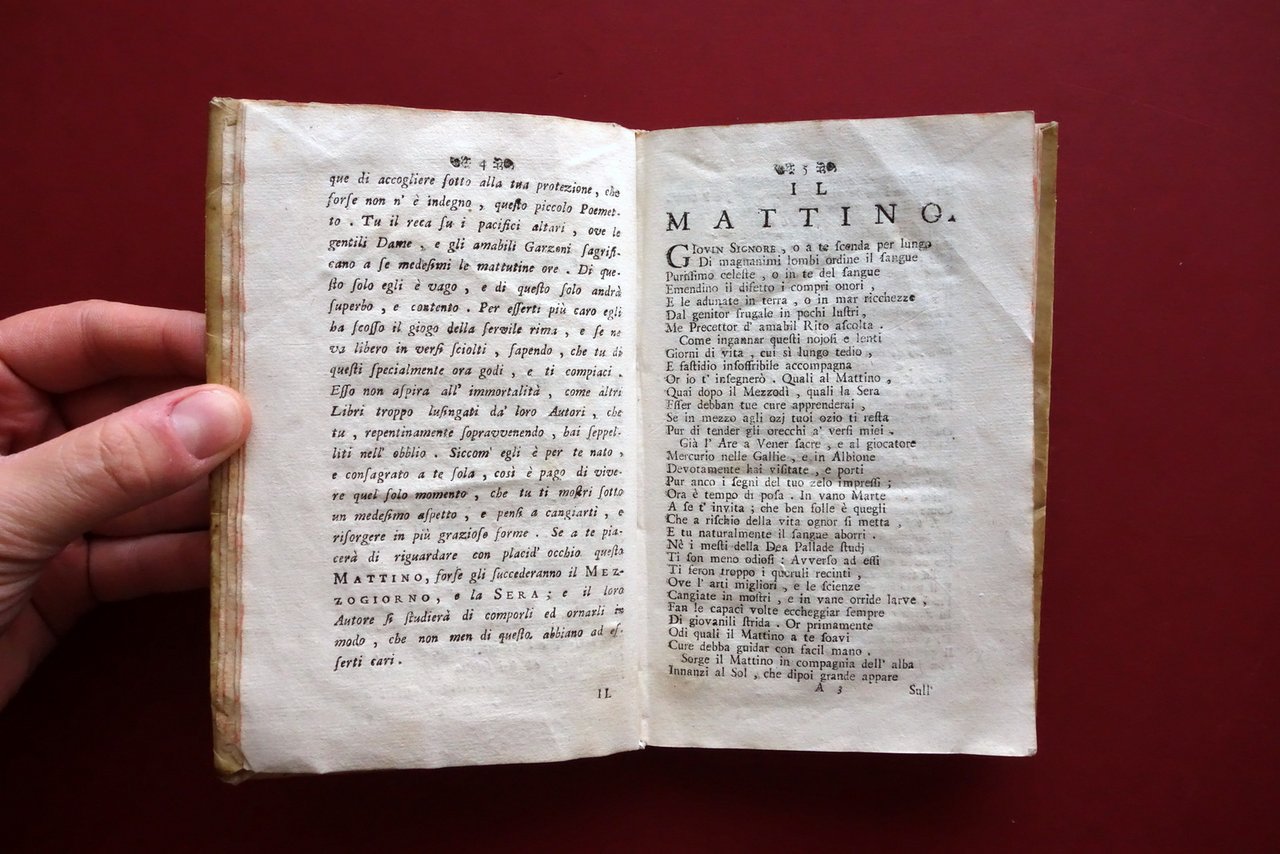 4
que di accogliere ſotto alla tua protezione, che
forſe non n' è indegno, queſto piccolo Poemet-
to. Tu il reca ſu i pacifici altari, ove le
gentili Dame, e gli amabili Garzoni ſagrifi-
cano a ſe medeſimi le mattutine ore. Di que-
ſto ſolo egli è vago, e di queſto ſolo andrà
ſuperbo, e contento. Per eſſerti più caro egli
ha ſcoſſo il giogo della ſervile rima, e ſe ne
va libero in verſi ſciolti, ſapendo, che tu di
queſti ſpecialmente ora godi, e ti compiaci.
Eſſo non aſpira all' immortalità, come altri
Libri troppo luſingati da' loro Autori, che
tu, repentinamente ſopravvenendo, hai ſeppel-
liti nell' obblio. Siccom' egli è per te nato,
e conſagrato a te ſola, così è pago di vive-
re quel ſolo momento, che tu ti moſtri ſotto
un medeſimo aſpetto, e penſi a cangiarti, e
riſorgere in più grazioſe forme. Se a te pia-
cerà di riguardare con placid' occhio queſto
MATTINO, forſe gli ſuccederanno il MEZ-
ZOGIORNO, e la SERA; e il loro
Autore ſi ſtudierà di comporli ed ornarli in
modo, che non men di queſto abbiano ad eſ-
ſerti cari.
IL
5
IL
MATTINO.
GIOVIN SIGNORE, o a te ſcenda per lungo
Di magnanimi lombi ordine il ſangue
Puriſſimo celeſte, o in te del ſangue
Emendino il difetto i compri onori,
E le adunate in terra, o in mar ricchezze
Dal genitor frugale in pochi luſtri,
Me Precettor d' amabil Rito aſcolta.
Come ingannar queſti nojoſi e lenti
Giorni di vita, cui sì lungo tedio,
E faſtidio inſoffribile accompagna
Or io t' inſegnerò. Quali al Mattino,
Quai dopo il Mezzodì, quali la Sera
Eſſer debban tue cure apprenderai,
Se in mezzo agli ozj tuoi ozio ti reſta
Pur di tender gli orecchi a' verſi miei.
Già l' Are a Vener ſacre, e al giocatore
Mercurio nelle Gallie, e in Albione
Devotamente hai viſitate, e porti
Pur anco i ſegni del tuo zelo impreſſi;
Ora è tempo di poſa. In vano Marte
A ſe t' invita; che ben folle è quegli
Che a riſchio della vita onor ſi merta,
E tu naturalmente il ſangue aborri.
Nè i meſti della Dea Pallade ſtudj
Ti ſon meno odioſi: Avverſo ad eſſi
Ti feron troppo i queruli recinti,
Ove l' arti migliori, e le ſcienze
Cangiate in moſtri, e in vane orride larve,
Fan le capaci volte eccheggiar ſempre
Di giovanili ſtrida. Or primamente
Odi quali il Mattino a te ſoavi
Cure debba guidar con facil mano.
Sorge il Mattino in compagnia dell' alba
Innanzi al Sol, che dipoi grande appare
A 3 Sull'